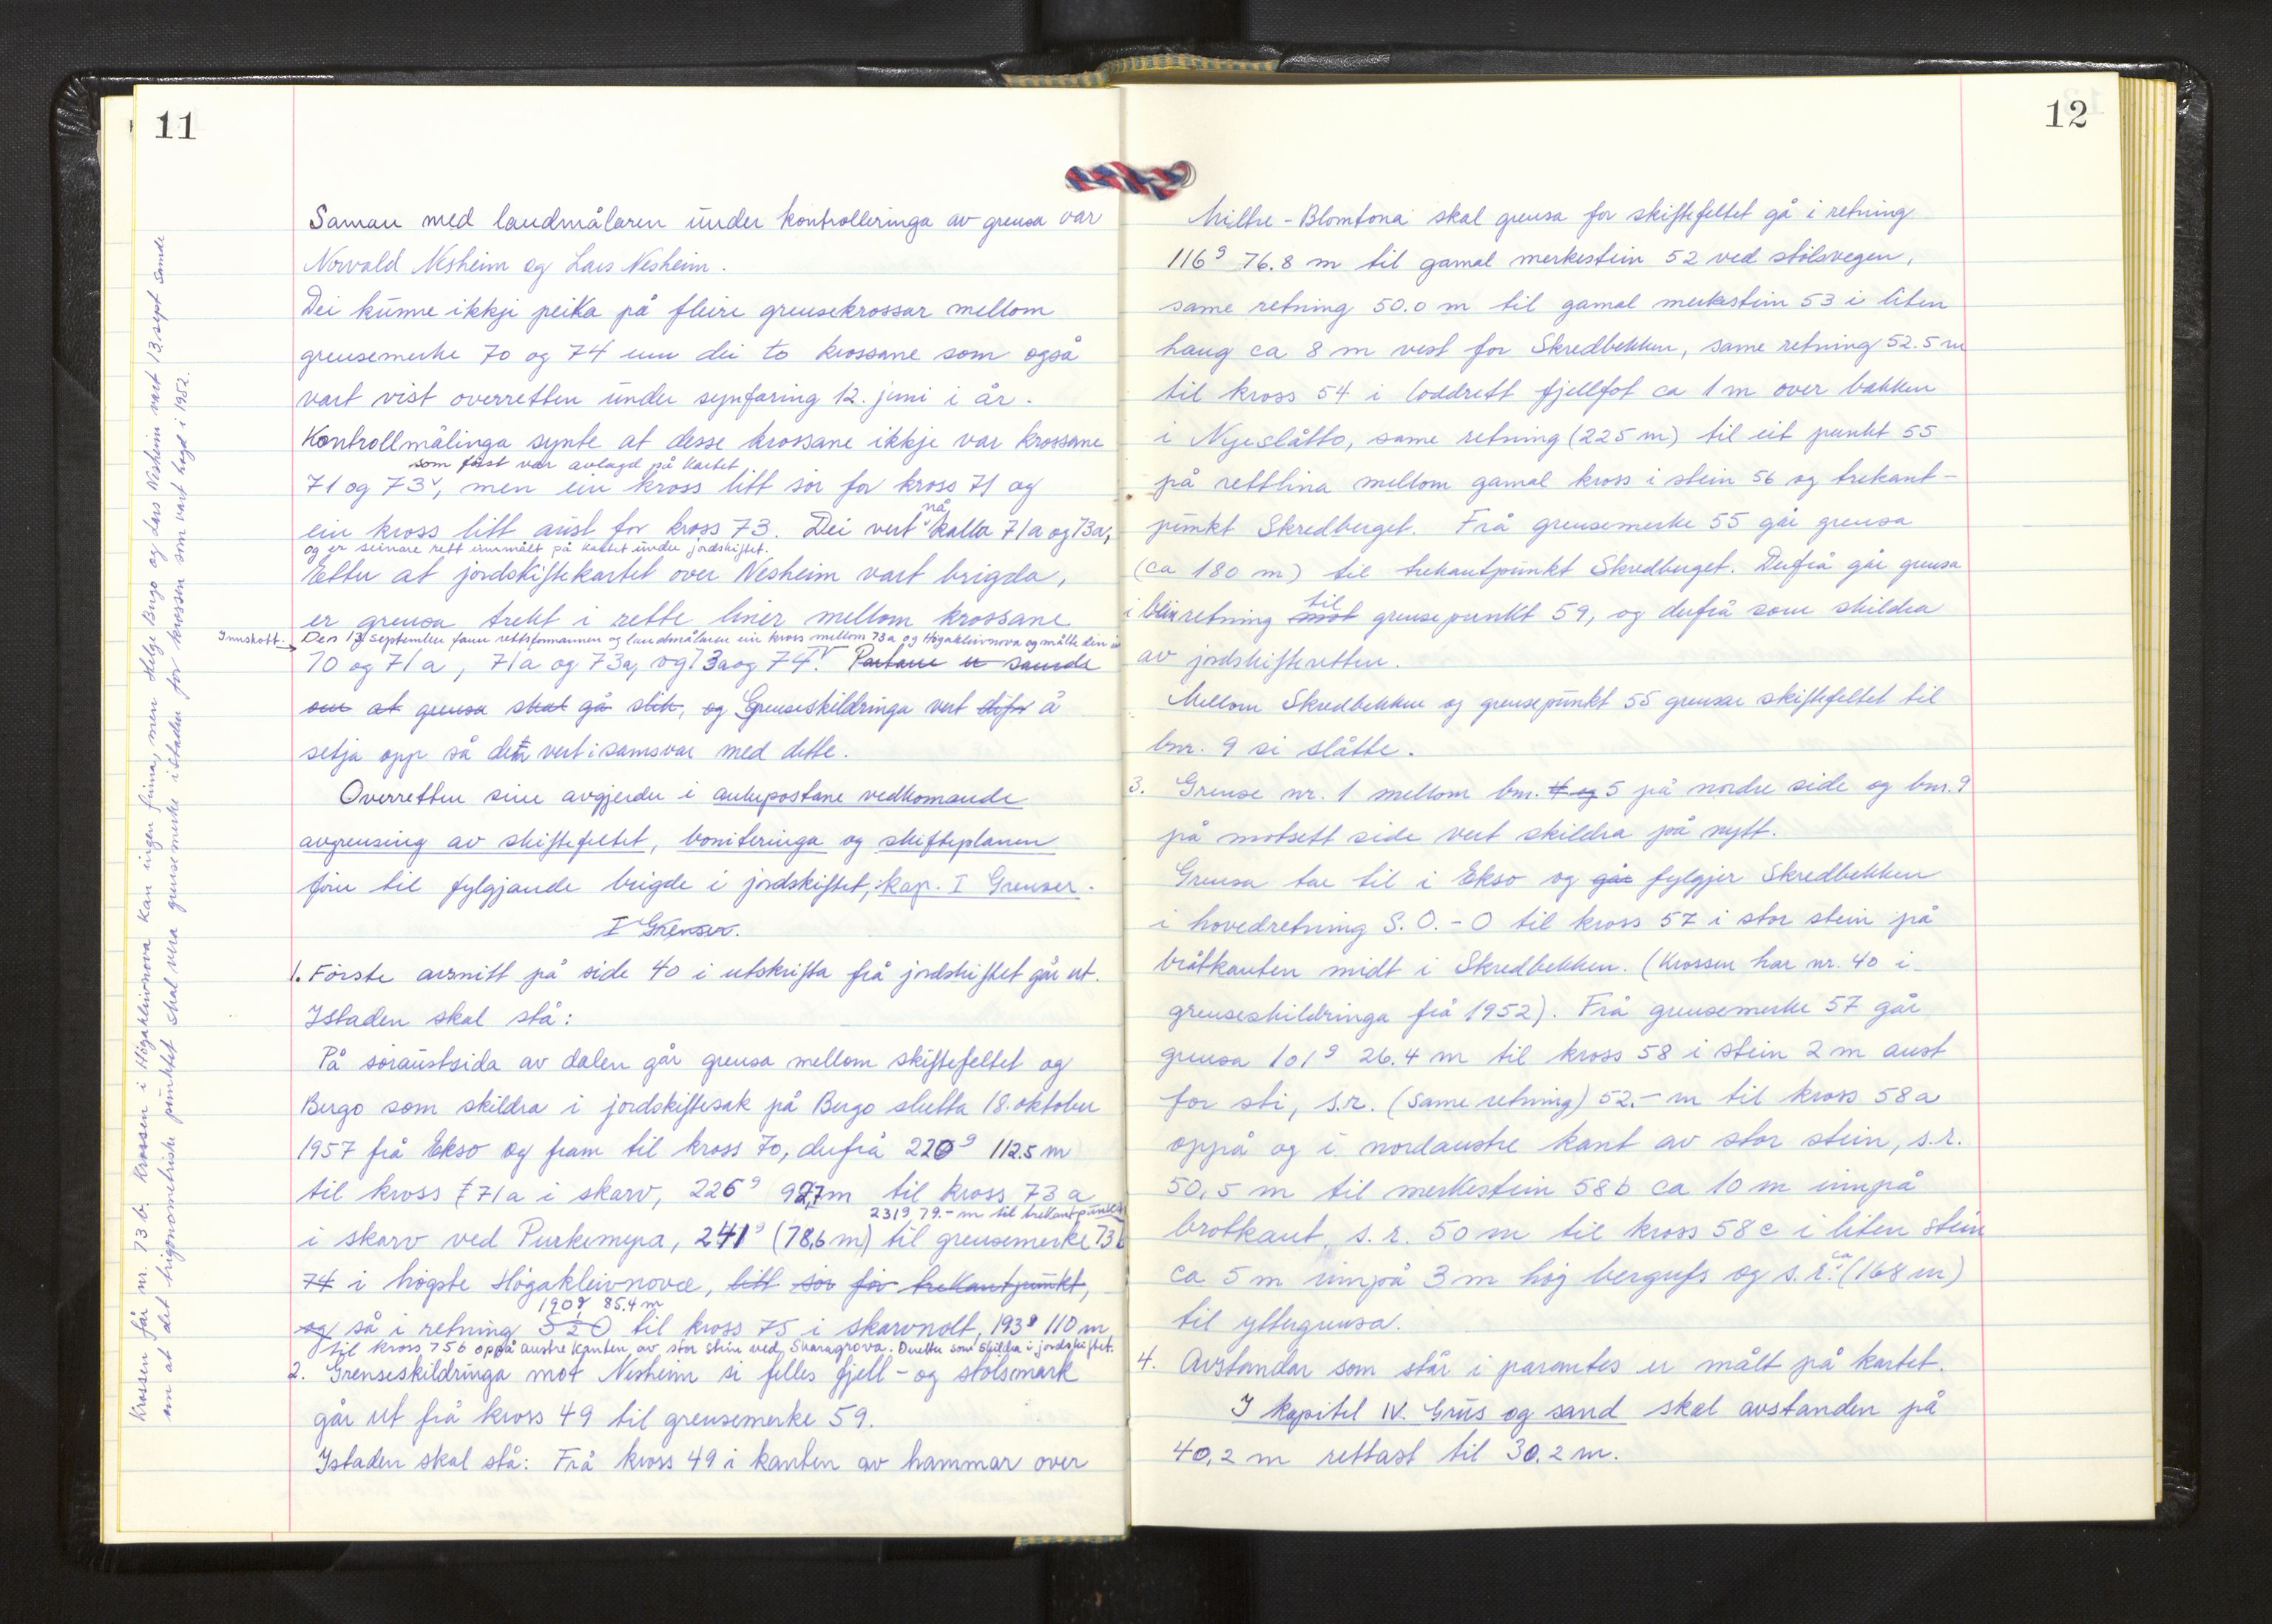 11
Saman med landmålaren under kontrolleringa av grensa var
Norvald Nesheim og Lars Nesheim.
Dei kunne ikkje peika på fleire grensekrossar mellom
grensemerke 70 og 74 enn dei to krossane som også
vart vist overretten under synfaring 12. juni i år.
Kontrollmålinga synte at desse krossane ikkje var krossane
som först var avlagd på kartet
71 og 73, men ein kross litt sör for kross 71 og
nå
ein kross litt aust for kross 73. Dei vert kalla 71a og 73a,
og er seinare rett innmålt på kartet under jordskiftet.
Etter at jordskiftekartet over Nesheim vart brigda,
er grensa trekt i rette liner mellom krossane
Innskott. Den 13/ september fann rettsformannen og landmålaren ein kross mellom 73a og Högakleivnova og målte den inn
70 og 71a, 71a og 73a, og 73a og 74. Partane er samde
om at grensa skal gå slik, og Grenseskildringa vert difor å
setja opp så den vert i samsvar med dette.
Overretten sine avgjerder i ankepostane vedkomande
avgrensing av skiftefeltet, boniteringa og skifteplanen
förer til fylgjande brigde i jordskiftet, kap. I Grenser.
I Grenser.
1. Förste avsnitt på side 40 i utskrifta frå jordskiftet går ut.
Istaden skal stå:
På söraustsida av dalen går grensa mellom skiftefeltet og
Bergo som skildra i jordskiftesak på Bergo slutta 18. oktober
1957 frå Ekso og fram til kross 70, derfrå 220g 112.5 m
til kross 71a i skarv, 226g 92,7m til kross 73a
231g 79.- m til trekantpunktet
i skarv ved Purkemyra, 241g (78,6 m) til grensemerke 73b
74 i högste Högakleivnovæ, litt sör for trekantpunkt,
190g 85.4 m
og så i retning S 2 O til kross 75 i skarvnolt, 193g 110 m
til kross 75b oppå austre kanten av stor stein ved Svaragrova. Deretter som skildra i jordskiftet.
2. Grenseskildringa mot Nesheim si felles fjell- og stölsmark
går ut frå kross 49 til grensemerke 59.
Istaden skal stå: Frå kross 49 i kanten av hammar over
Krossen får nr. 73 b. Krossen i Högakleivnova kan ingen finna, men Helge Bergo og Lars Nesheim vart 13. sept. samde
om at det trigonometriske punktet skal vera grensemerke istaden for krossen som vart hogd i 1952.
12
Midtre-Blomtona skal grensa for skiftefeltet gå i retning
116g 76.8 m til gamal merkestein 52 ved stölsvegen,
same retning 50.0 m til gamal merkestein 53 i liten
haug ca 8 m vest for Skredbekken, same retning 52.5 m
til kross 54 i loddrett fjellfot ca 1 m over bakken
i Nyeslåtto, same retning (225 m) til eit punkt 55
på rettlina mellom gamal kross i stein 56 og trekant-
punkt Skredberget. Frå grensemerke 55 går grensa
(ca 180 m) til trekantpunkt Skredberget. Derfrå går grensa
til
i bein retning mot grensepunkt 59, og derfrå som skildra
av jordskifteretten.
Mellom Skredbekken og grensepunkt 55 grensar skiftefeltet til
bnr. 9 si slåtte.
3. Grense nr. 1 mellom bnr. 4 og 5 på nordre side og bnr. 9
på motsett side vert skildra på nytt.
Grensa tar til i Ekso og går fylgjer Skredbekken
i hovedretning S.O.-O til kross 57 i stor stein på
bråtkanten midt i Skredbekken. (Krossen har nr. 40 i
grenseskildringa frå 1952). Frå grensemerke 57 går
grensa 101g 26.4 m til kross 58 i stein 2 m aust
for sti, s.r. (same retning) 52.- m til kross 58a
oppå og i nordaustre kant av stor stein, s.r.
50,5 m til merkestein 58b ca 10 m innpå
brotkant, s.r. 50 m til kross 58c i liten stein
ca 5 m innpå 3 m hög bergufs og s.r. ca (168 m)
til yttergrensa.
4. Avstandar som står i parantes er målt på kartet.
I kapitel IV. Grus og sand skal avstanden på
40,2 m rettast til 30,2 m.